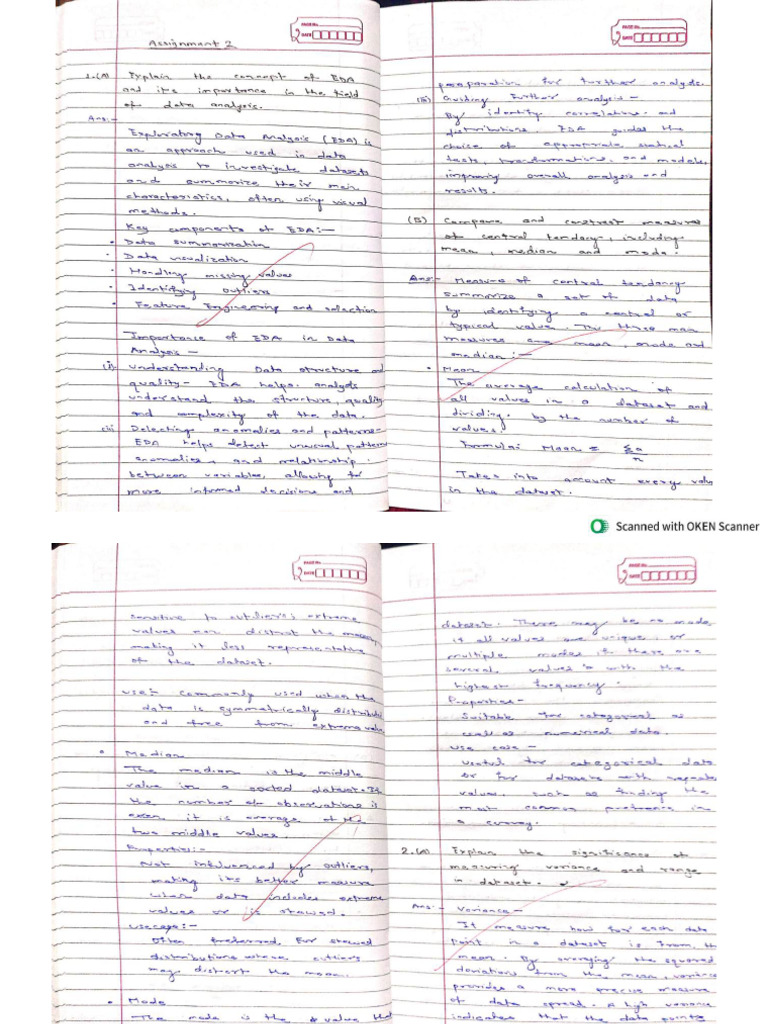 PAGE No.
DATE
Assignment 2
1.(A) Explain the concept of EDA
and it's importance in the field
of data analysis.
Ans:-
Explorating Data Analysis (EDA) is
an approach used in data
analysis to investigate datasets
and summarize their main
characteristics, often using visual
methods.
Key components of EDA:-
• Data summarization
• Data visualization
• Handling missing values
• Identifying outliers
• Feature Engineering and selection
Importance of EDA in Data
Analysis -
(i) Understanding Data structure and
quality - EDA helps analysts
understand the structure, quality
and complexity of the data.
(ii) Detecting anomalies and patterns -
EDA helps detect unusual patterns
anomalies, and relationship
between variables, allowing for
more informed decisions and
PAGE No.
DATE
preparation for further analysis.
(iii) Guiding further analysis -
By identify correlations and
distributions, EDA guides the
choice of appropriate
tests, transformations, and models,
improving overall analysis and
results.
(B) Compare and constrast measures
of central tendacy, including
mean, median and mode.
Ans:- Measure of central tendancy
summarize a set of data
by identifying a central or
typical value. The three main
measures are mean, mode and
median :-
• Mean
The average calculation of
all values in a dataset and
dividing by the number of
values
Formula: Mean = Σx
n
Takes into account every value
in the dataset.
Scanned with OKEN Scanner
PAGE No.
DATE
sensitive to outliers; extreme
values can distort the mean,
making it less representative
of the dataset.
use:- commonly used when the
data is symmetrically distributed
and free from extreme value
• Median
The median is the middle
value in a sorted dataset. If
the number of observations is
even it is average of the
two middle values.
Properties:-
Not influenced by outliers,
making its better measure
when data includes extreme
values or is skewed.
usecase:-
Often preferred for skewed
distributions where outliers
may distort the mean.
• Mode
The mode is the value that
PAGE No.
DATE
dataset. There may be no mode
if all values are unique, or
multiple modes if there are
several values with the
highest frequency.
Properties-
Suitable for categorical as
well as numerical data.
use case -
Useful for categorical data
or for datasets with repeate
values, such as finding the
most common preference in
a survey.
2.(A) Explain the significance of
measuring variance and range
in dataset.
Ans:- Variance -
It measure how far each data
point in a dataset is from the
mean. By averaging the squared
deviations from the mean, variance
provides a more precise measure
of data spread. A high variance
indicates that the data points